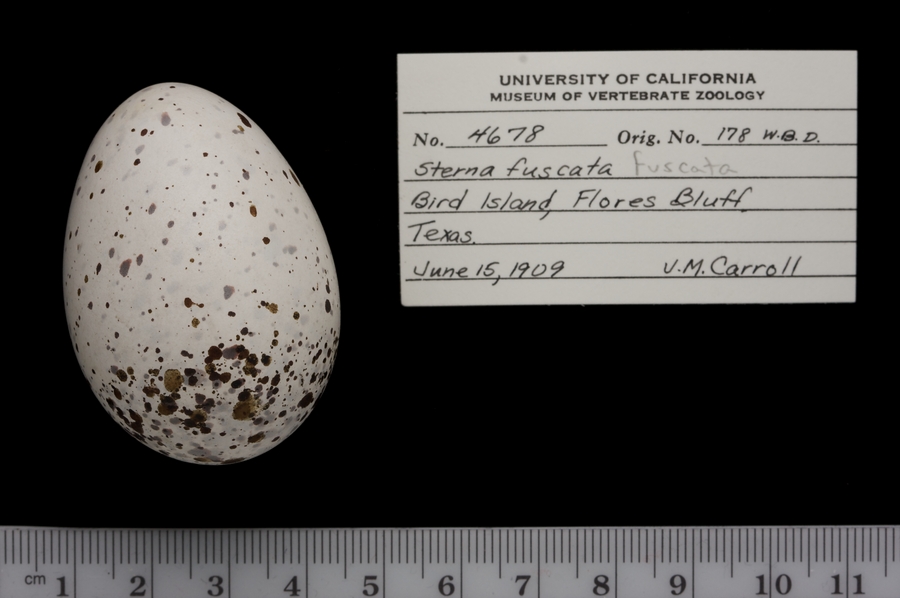 UNIVERSITY OF CALIFORNIA
MUSEUM OF VERTEBRATE ZOOLOGY
No. 4678 Orig. No. 178 W.B.D.
Sterna fuscata fuscata
Bird Island, Flores Bluff,
Texas.
June 15, 1909 J.M. Carroll
cm 1 2 3 4 5 6 7 8 9 10 11